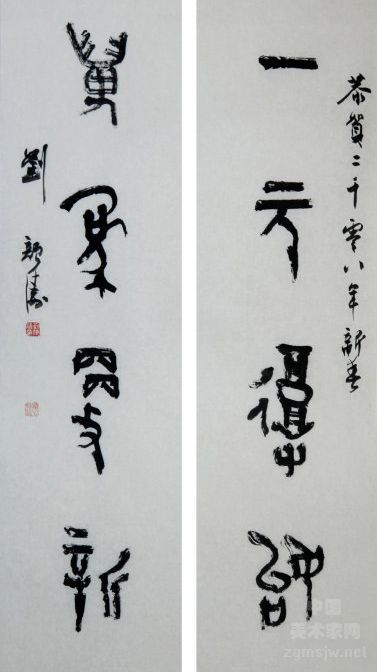 恭賀二千零八年新春
一元復始
萬象更新
劉顏濤
中国
美术家网
zgmsjw.net